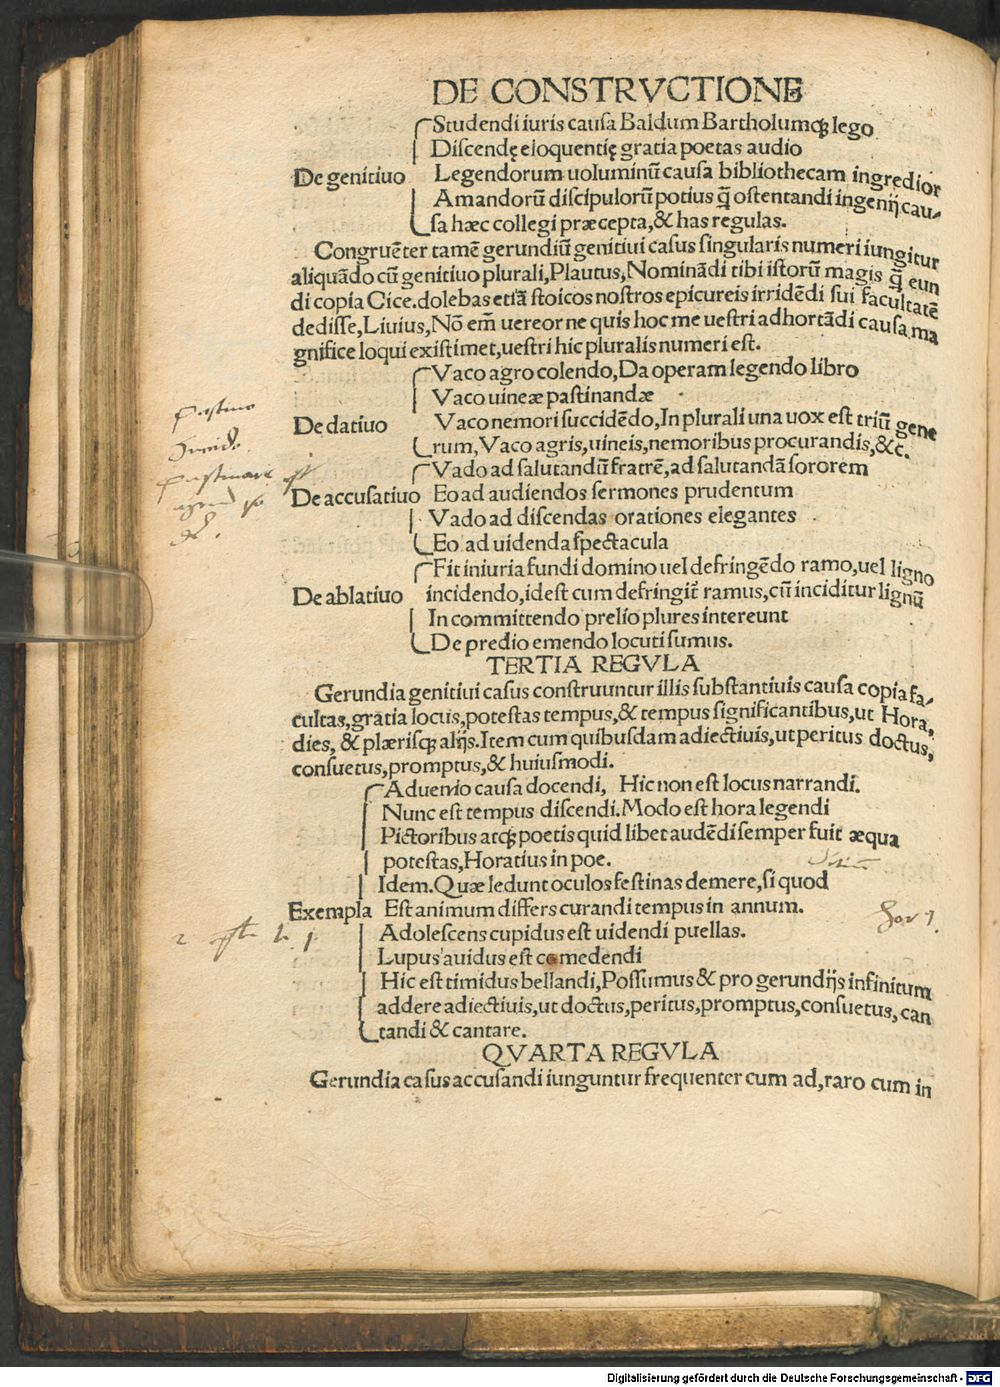 DE CONSTRVCTIONE
Studendi iuris causa Baldum Bartholumqꝫ lego
Discendę eloquentię gratia poetas audio
De genitiuo Legendorum uoluminũ causa bibliothecam ingredior
Amandorũ discipulorũ potius q̃ ostentandi ingenij cau-
sa hæc collegi præcepta, & has regulas.
Congruẽter tamẽ gerundiũ genitiui casus singularis numeri iungitur
aliquãdo cũ genitiuo plurali, Plautus, Nominãdi tibi istorũ magis q̃ eun
di copia Cice. dolebas etiã stoicos nostros epicureis irridẽdi sui facultatẽ
dedisse, Liuius, Nõ em̃ uereor ne quis hoc me uestri adhortãdi causa ma
gnifice loqui existimet, uestri hic pluralis numeri est.
Vaco agro colendo, Da operam legendo libro
Vaco uineæ pastinandæ
De datiuo Vaco nemori succidẽdo, In plurali una uox est triũ gene
rum, Vaco agris, uineis, nemoribus procurandis, &c.
Vado ad salutandũ fratrẽ, ad salutandã sororem
De accusatiuo Eo ad audiendos sermones prudentum
Vado ad discendas orationes elegantes
Eo ad uidenda spectacula
Fit iniuria fundi domino uel defringẽdo ramo, uel ligno
De ablatiuo incidendo, idest cum defringit̃ ramus, cũ inciditur lignũ
In committendo prelio plures intereunt
De predio emendo locuti sumus.
TERTIA REGVLA
Gerundia genitiui casus construuntur illis substantiuis causa copia fa-
cultas, gratia locus, potestas tempus, & tempus significantibus, ut Hora,
dies, & plærisqꝫ alijs. Item cum quibusdam adiectiuis, ut peritus doctus,
consuetus, promptus, & huiusmodi.
Aduenio causa docendi, Hic non est locus narrandi.
Nunc est tempus discendi. Modo est hora legendi
Pictoribus atqꝫ poetis quid libet audẽdi semper fuit æqua
potestas, Horatius in poe.
Idem. Quæ ledunt oculos festinas demere, si quod
Exempla Est animum differs curandi tempus in annum.
Adolescens cupidus est uidendi puellas.
Lupus auidus est comedendi
Hic est timidus bellandi, Possumus & pro gerundijs infinitum
addere adiectiuis, ut doctus, peritus, promptus, consuetus, can
tandi & cantare.
QVARTA REGVLA
Gerundia casus accusandi iunguntur frequenter cum ad, raro cum in
Digitalisierung gefördert durch die Deutsche Forschungsgemeinschaft - DFG